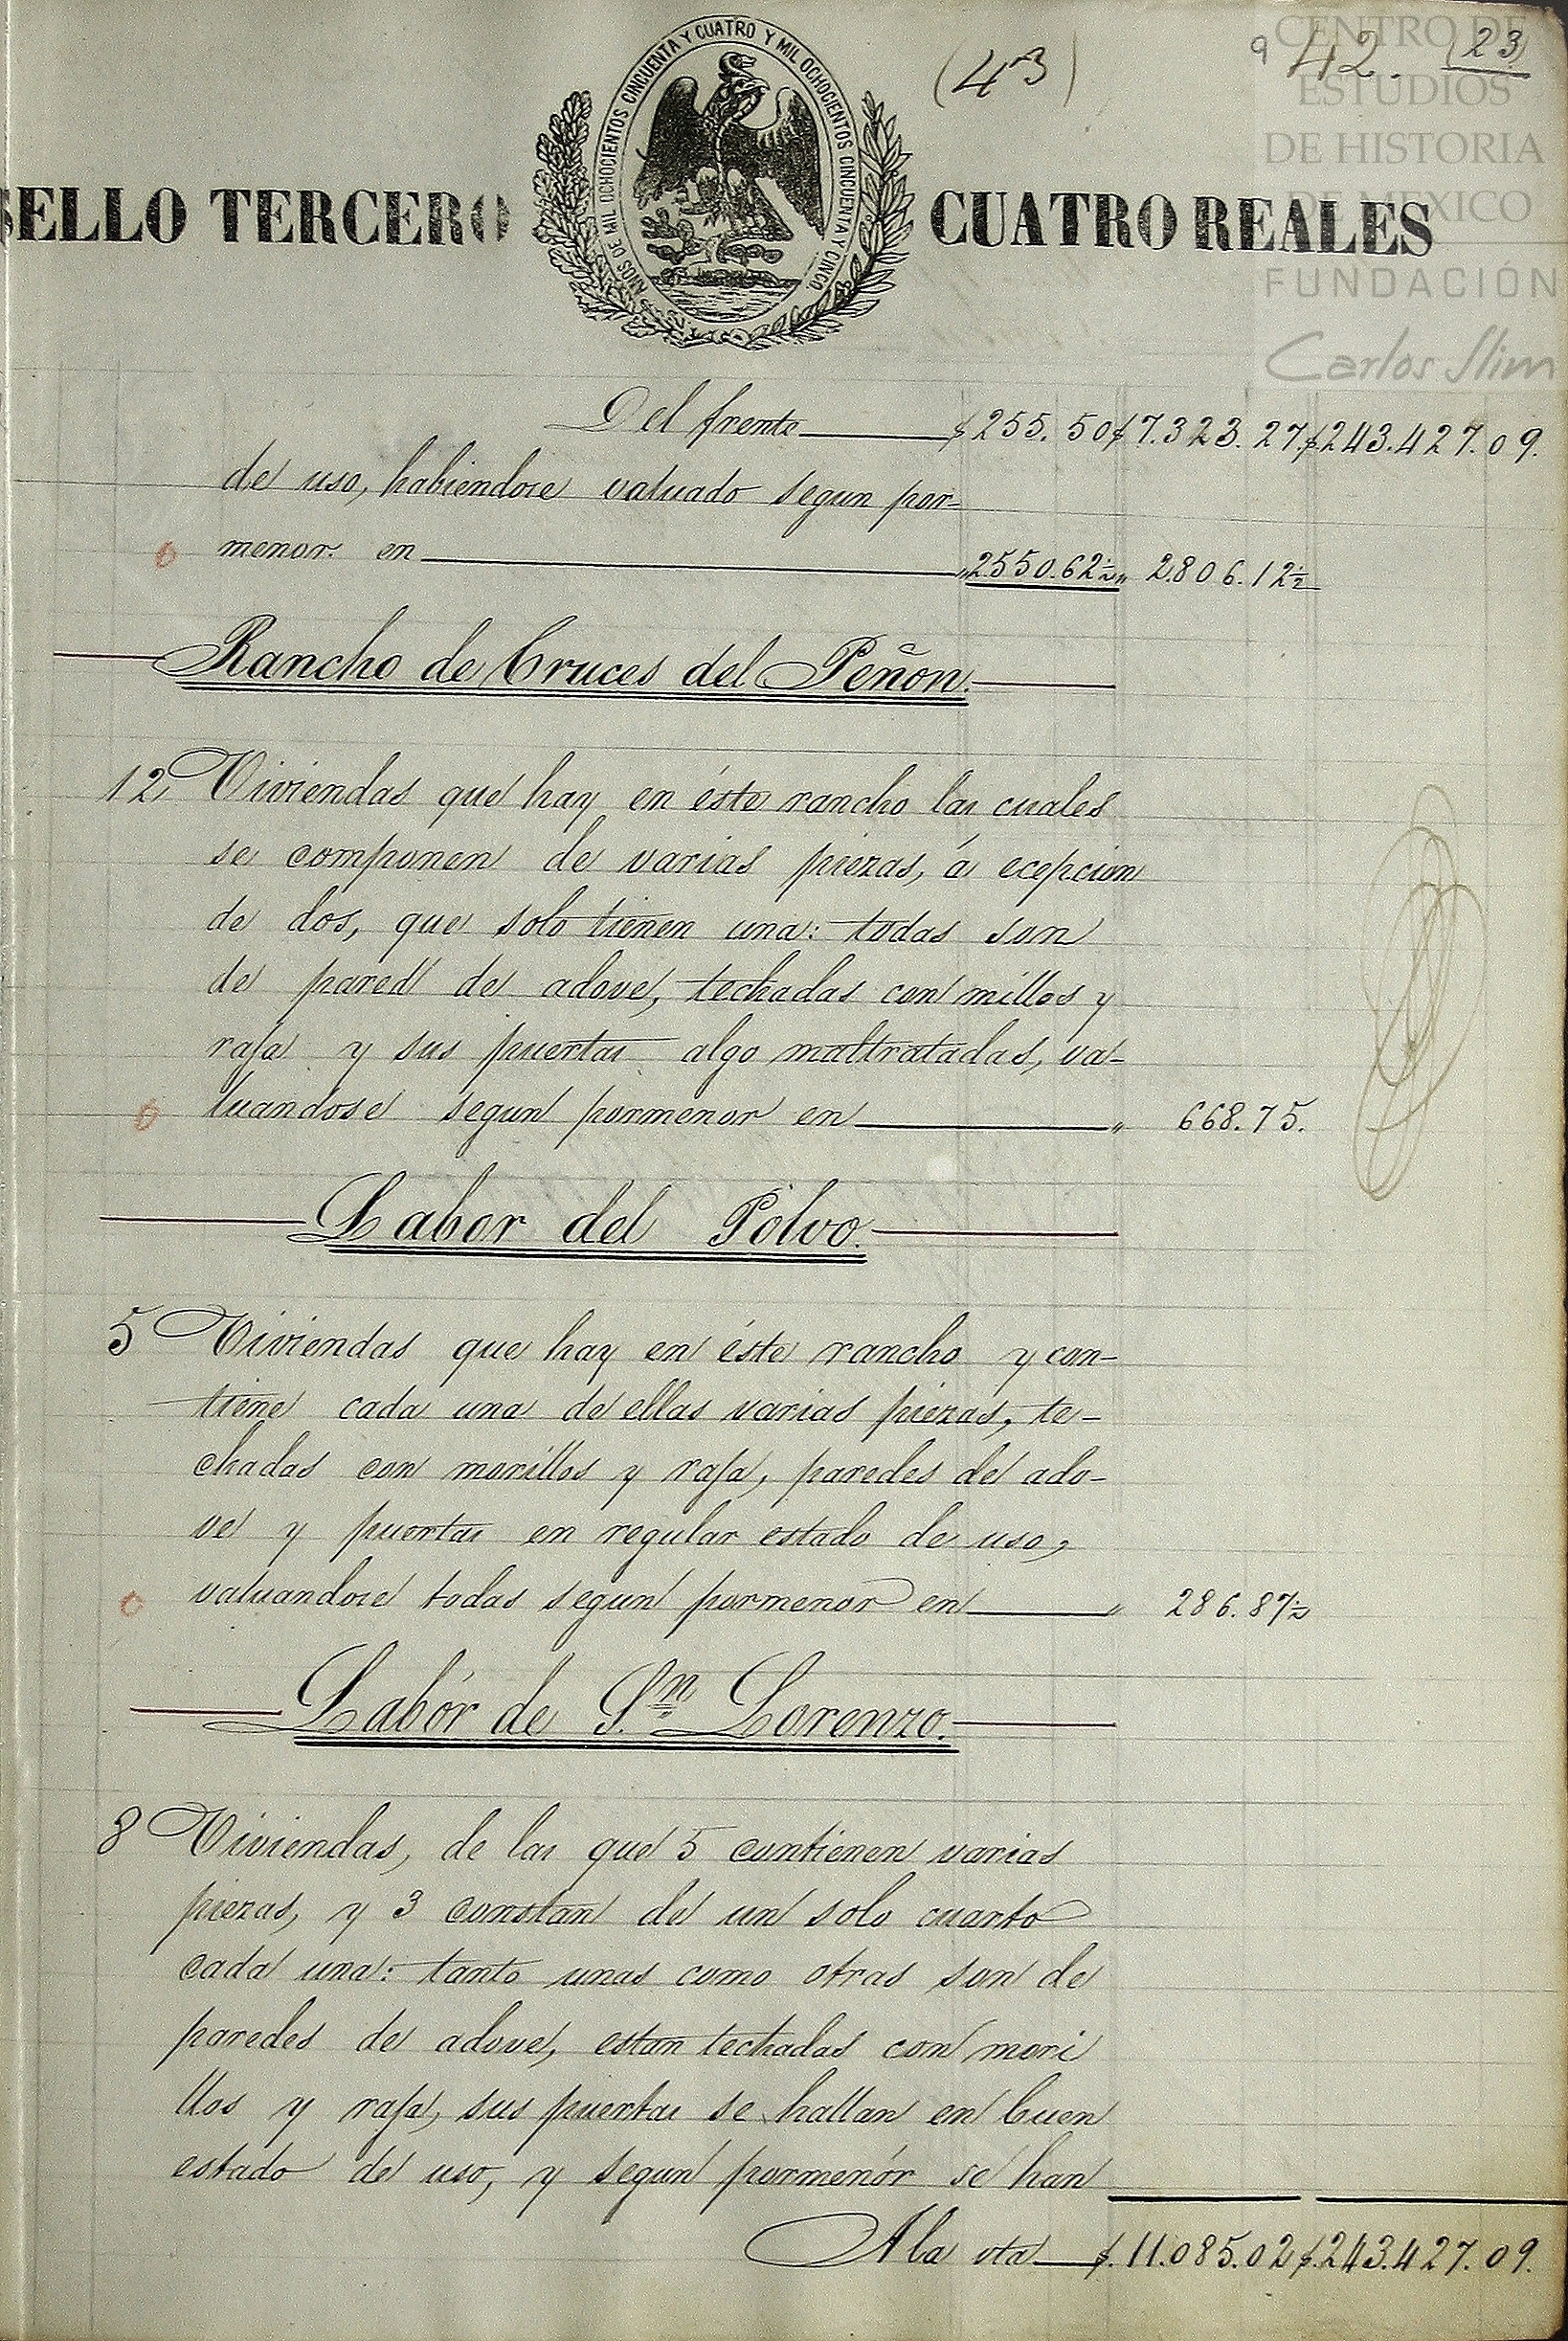 (43)
9 42. (23)
CENTRO DE
ESTUDIOS
DE HISTORIA
DE MEXICO
FUNDACIÓN
Carlos Slim
SELLO TERCERO
AÑOS DE MIL OCHOCIENTOS CINCUENTA Y CUATRO Y MIL OCHOCIENTOS CINCUENTA Y CINCO.
CUATRO REALES
Del frente $255.50 $7.323.27. $.243.427.09.
de uso, habiendose valuado segun por-
menor en „2550.62½ „ 2.806.12½
Rancho de Cruces del Peñon.
12 Viviendas que hay en éste rancho las cuales
se componen de varias piezas, á ecepcion
de dos, que solo tienen una: todas son
de pared de adove, techadas con millos y
rafa y sus puertas algo maltratadas, va-
luandose segun pormenor en „ 668.75.
Labor del Polvo.
5 Viviendas que hay en éste rancho y con-
tiene cada una de ellas varias piezas, te-
chadas con morillos y rafa, paredes de ado-
ve y puertas en regular estado de uso,
valuandose todas segun pormenor en „ 286.87½
Labór de S.n Lorenzo.
8 Viviendas, de las que 5 contienen varias
piezas, y 3 constan de un solo cuarto
cada una: tanto unas como otras son de
paredes de adove, estan techadas con mori
llos y rafa, sus puertas se hallan en buen
estado de uso, y segun pormenór se han
A la vta $.11.085.02 $.243.427.09.